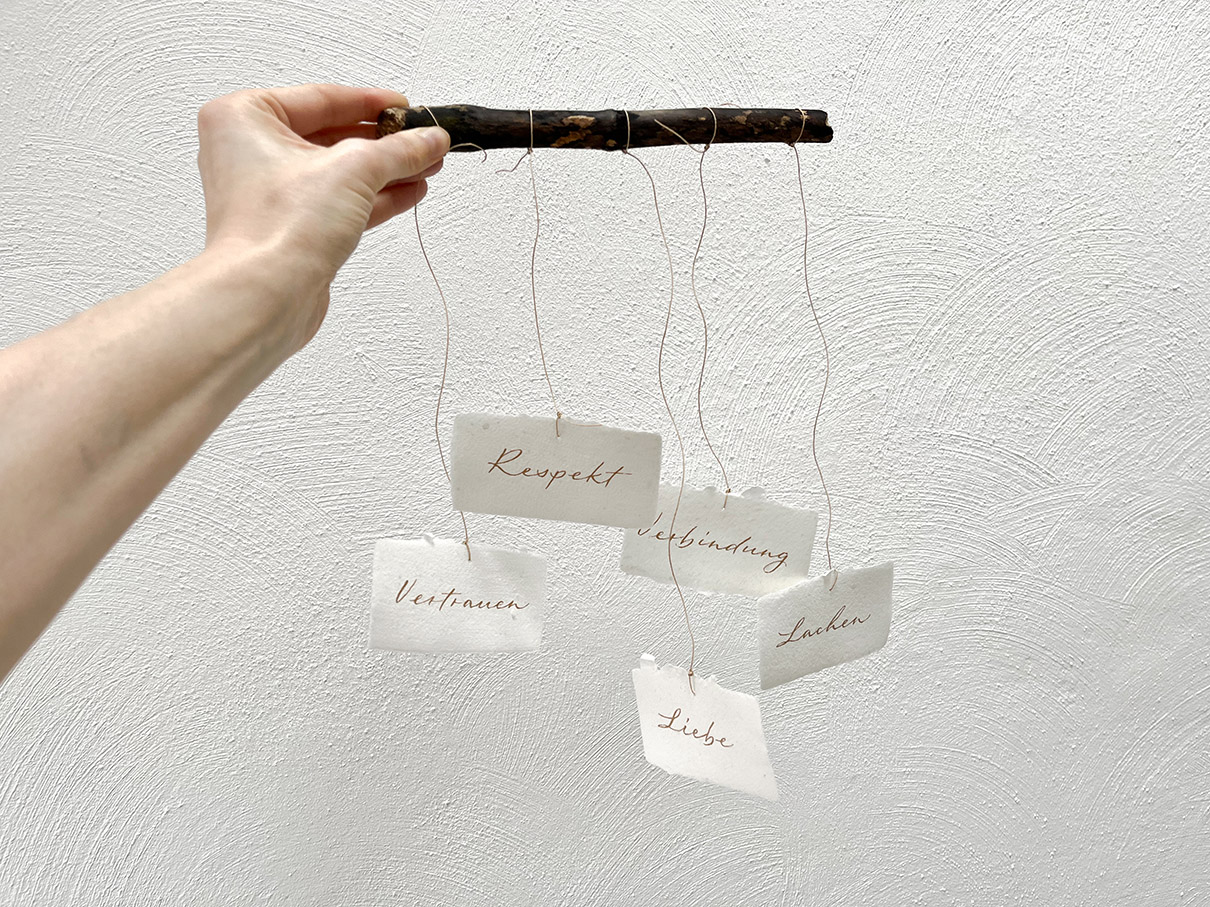 Respekt
Verbindung
Vertrauen
Lachen
Liebe